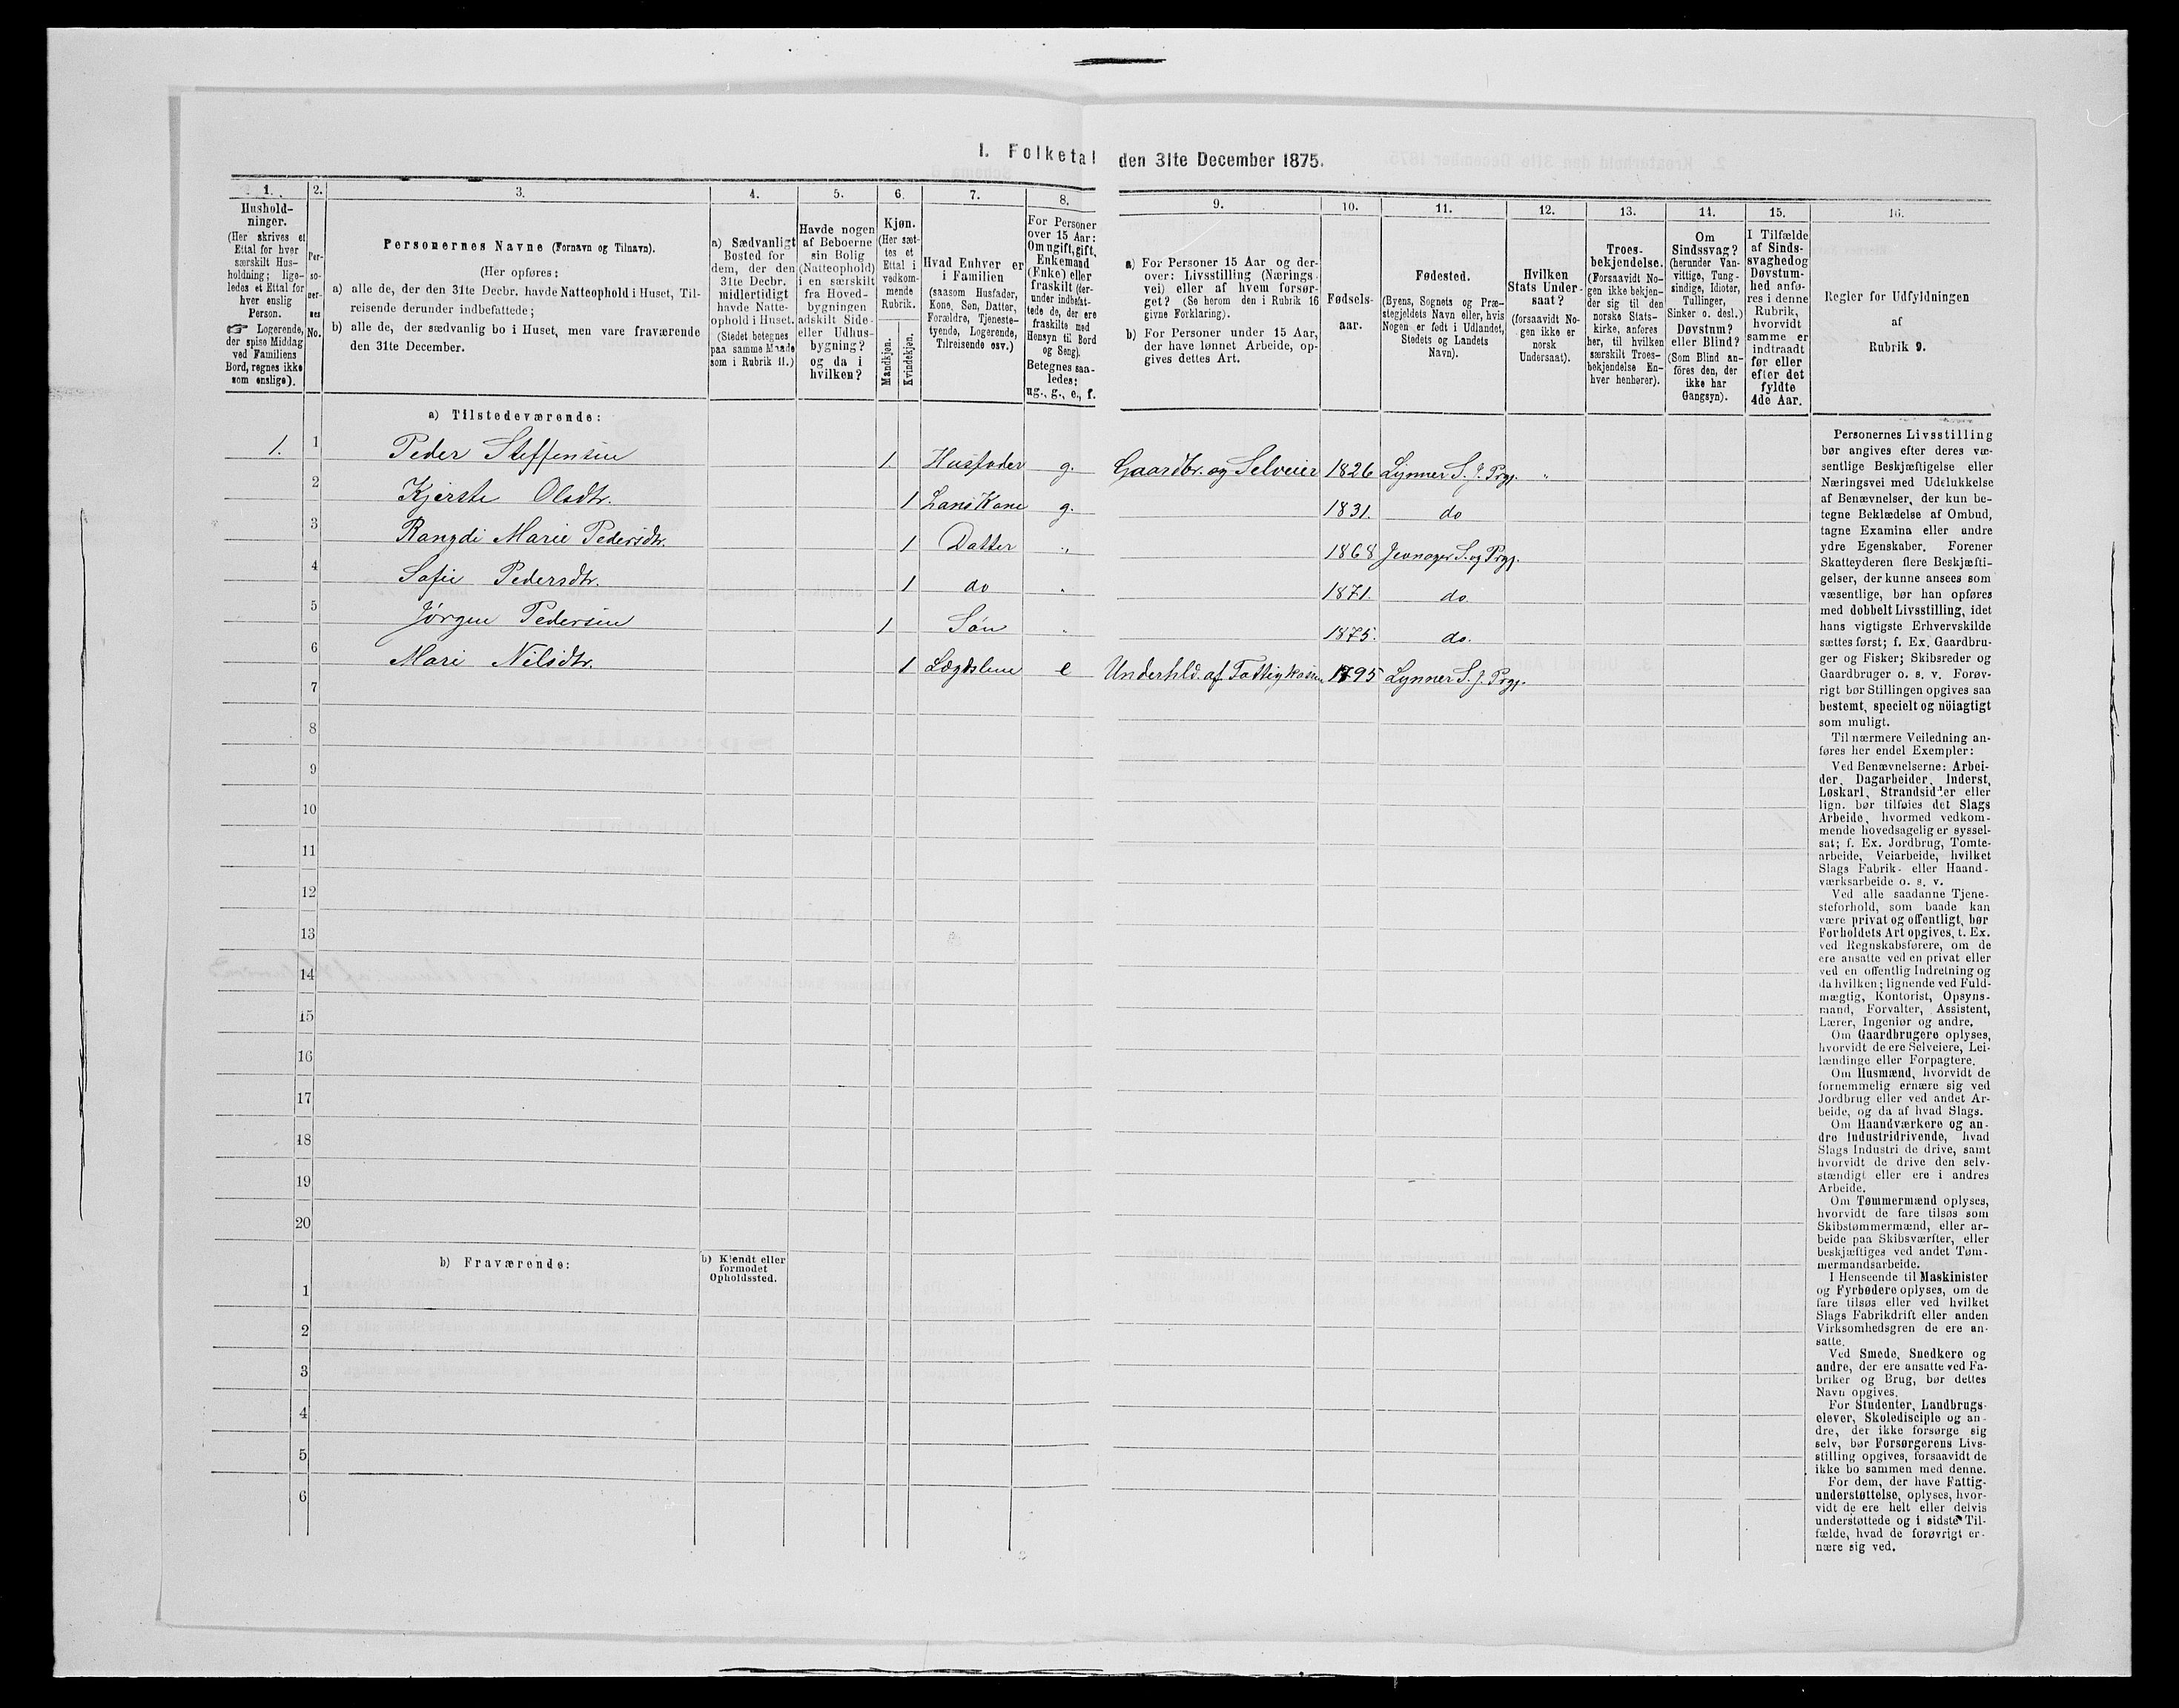 I. Folketal den 31te December 1875.
1.
Hushold-
ninger.
(Her skrives et
Ettal for hver
særskilt Hus-
holdning; lige-
ledes et Ettal for
hver enslig
Person.
☞ Logerende,
der spise Middag
ved Familiens
Bord, regnes ikke
som enslige).
2.
Per-
so-
ner-
nes
No.
3.
Personernes Navne (Fornavn og Tilnavn).
(Her opføres:
a) alle de, der den 31te Decbr. havde Natteophold i Huset, Til-
reisende derunder indbefattede;
b) alle de, der sædvanlig bo i Huset, men vare fraværende
den 31te December.
4.
a) Sædvanligt
Bosted for
dem, der den
31te Decbr.
midlertidigt
havde Natte-
ophold i Huset.
(Stedet betegnes
paa samme Maade
som i Rubrik 11.)
5.
Havde nogen
af Beboerne
sin Bolig
(Natteophold)
i en særskilt
fra Hoved-
bygningen
adskilt Side-
eller Udhus-
bygning?
og da i
hvilken?
6.
Kjøn.
(Her sæt-
tes et
Ettal i
vedkom-
mende
Rubrik.
Mandkjøn.
Kvindekjøn.
7.
Hvad Enhver er
i Familien
(saasom Husfader,
Kone, Søn, Datter,
Forældre, Tjeneste-
tyende, Logerende,
Tilreisende osv.)
8.
For Personer
over 15 Aar:
Om ugift, gift,
Enkemand
(Enke) eller
fraskilt (der-
under indbefat-
tede de, der ere
fraskilte med
Hensyn til Bord
og Seng).
Betegnes saa-
ledes:
ug., g., e., f.
9.
a) For Personer 15 Aar og der-
over: Livsstilling (Nærings-
vei) eller af hvem forsør-
get? (Se herom den i Rubrik 16
givne Forklaring).
b) For Personer under 15 Aar,
der have lønnet Arbeide, op-
gives dettes Art.
10.
Fødsels-
aar.
11.
Fødested.
(Byens, Sognets og Præ-
stegjeldets Navn eller, hvis
Nogen er født i Udlandet,
Stedets og Landets
Navn).
12.
Hvilken
Stats Under-
saat?
(forsaavidt No-
gen ikke er
norsk
Undersaat).
13.
Troes-
bekjendelse.
(Forsaavidt No-
gen ikke bekjen-
der sig til den
norske Stats-
kirke, anføres
her, til hvilken
særskilt Troes-
bekjendelse En-
hver henhører).
14.
Om
Sindssvag?
(herunder Van-
vittige, Tung-
sindige, Idioter,
Tullinger,
Sinker o. desl.)
Døvstum?
eller Blind?
(Som Blind an-
føres den, der
ikke har
Gangsyn).
15.
I Tilfælde
af Sinds-
svaghed og
Døvstum-
hed anfø-
res i denne
Rubrik,
hvorvidt
samme er
indtraadt
før eller
efter det
fyldte
4de Aar.
16.
Regler for Udfyldningen
af
Rubrik 9.
a) Tilstedeværende:
1. 1 Peder Steffensen 1. Husfader g. Gaardbr. og Selveier 1826 Lynner S. J. Prgj. "
2 Kjerste Olsdtr. 1 Hans Kone g. 1831. do
3 Rangdi Marie Pedersdtr. 1 Datter " 1868 Jevnager S. og Prgj.
4 Sofie Pedersdtr. 1 do " 1871. do.
5 Jørgen Pedersen 1 Søn " 1875. do.
6 Mari Nilsdtr. 1 Lægdslem e Underhld. af Fattigkassen 1795 Lynner S. J. Prgj.
7
8
9
10
11
12
13
14
15
16
17
18
19
20
b) Fraværende:
b) Kjendt eller
formodet
Opholdssted.
1
2
3
4
5
6
Personernes Livsstilling
bør angives efter deres væ-
sentlige Beskjæftigelse eller
Næringsvei med Udelukkelse
af Benævnelser, der kun be-
tegne Beklædelse af Ombud,
tagne Examina eller andre
ydre Egenskaber. Forener
Skatteyderen flere Beskjæfti-
gelser, der kunne ansees som
væsentlige, bør han opføres
med dobbelt Livsstilling, idet
hans vigtigste Erhvervskilde
sættes først; f. Ex. Gaardbru-
ger og Fisker; Skibsreder og
Gaardbruger o. s. v. Forøv-
rigt bør Stillingen opgives saa
bestemt, specielt og nöiagtigt
som muligt.
Til nærmere Veiledning an-
føres her endel Exempler:
Ved Benævnelserne: Arbei-
der, Dagarbeider, Inderst,
Løskarl, Strandsidder eller
lign. bør tilføies det Slags
Arbeide, hvormed vedkom-
mende hovedsagelig er syssel-
sat; f. Ex. Jordbrug, Tomte-
arbeide, Veiarbeide, hvilket
Slags Fabrik- eller Haand-
værksarbeide o. s. v.
Ved alle saadanne Tjene-
steforhold, som baade kan
være privat og offentligt, bør
Forholdets Art opgives, t. Ex.
ved Regnskabsførere, om de
ere ansatte ved en privat eller
ved en offentlig Indretning og
da hvilken; lignende ved Fuld-
mægtig, Kontorist, Opsyns-
mand, Forvalter, Assistent,
Lærer, Ingeniør og andre.
Om Gaardbrugere oplyses,
hvorvidt de ere Selveiere, Lei-
lændinge eller Forpagtere.
Om Husmænd, hvorvidt de
fornemmelig ernære sig ved
Jordbrug eller ved andet Ar-
beide, og da af hvad Slags.
Om Haandværkere og an-
dre Industridrivende, hvad
Slags Industri de drive, samt
hvorvidt de drive den selv-
stændigt eller ere i andres
Arbeide.
Om Tømmermænd oplyses,
hvorvidt de fare tilsøs som
Skibstømmermænd, eller ar-
beide paa Skibsværfter, eller
beskjæftiges ved andet Tøm-
mermandsarbeide.
I Henseende til Maskinister
og Fyrbødere oplyses, om de
fare tilsøs eller ved hvilket
Slags Fabrikdrift eller anden
Virksomhedsgren de ere an-
satte.
Ved Smede, Snedkere og
andre, der ere ansatte ved Fa-
briker og Brug, bør dettes
Navn opgives.
For Studenter, Landbrugs-
elever, Skoledisciple og an-
dre, der ikke forsørge sig
selv, bør Forsørgerens Livs-
stilling opgives, forsaavidt de
ikke bo sammen med denne.
For dem, der have Fattig-
understøttelse, oplyses, hvor-
vidt de ere helt eller delvis
understøttede og i sidste Til-
fælde, hvad de forøvrigt er-
nære sig ved.